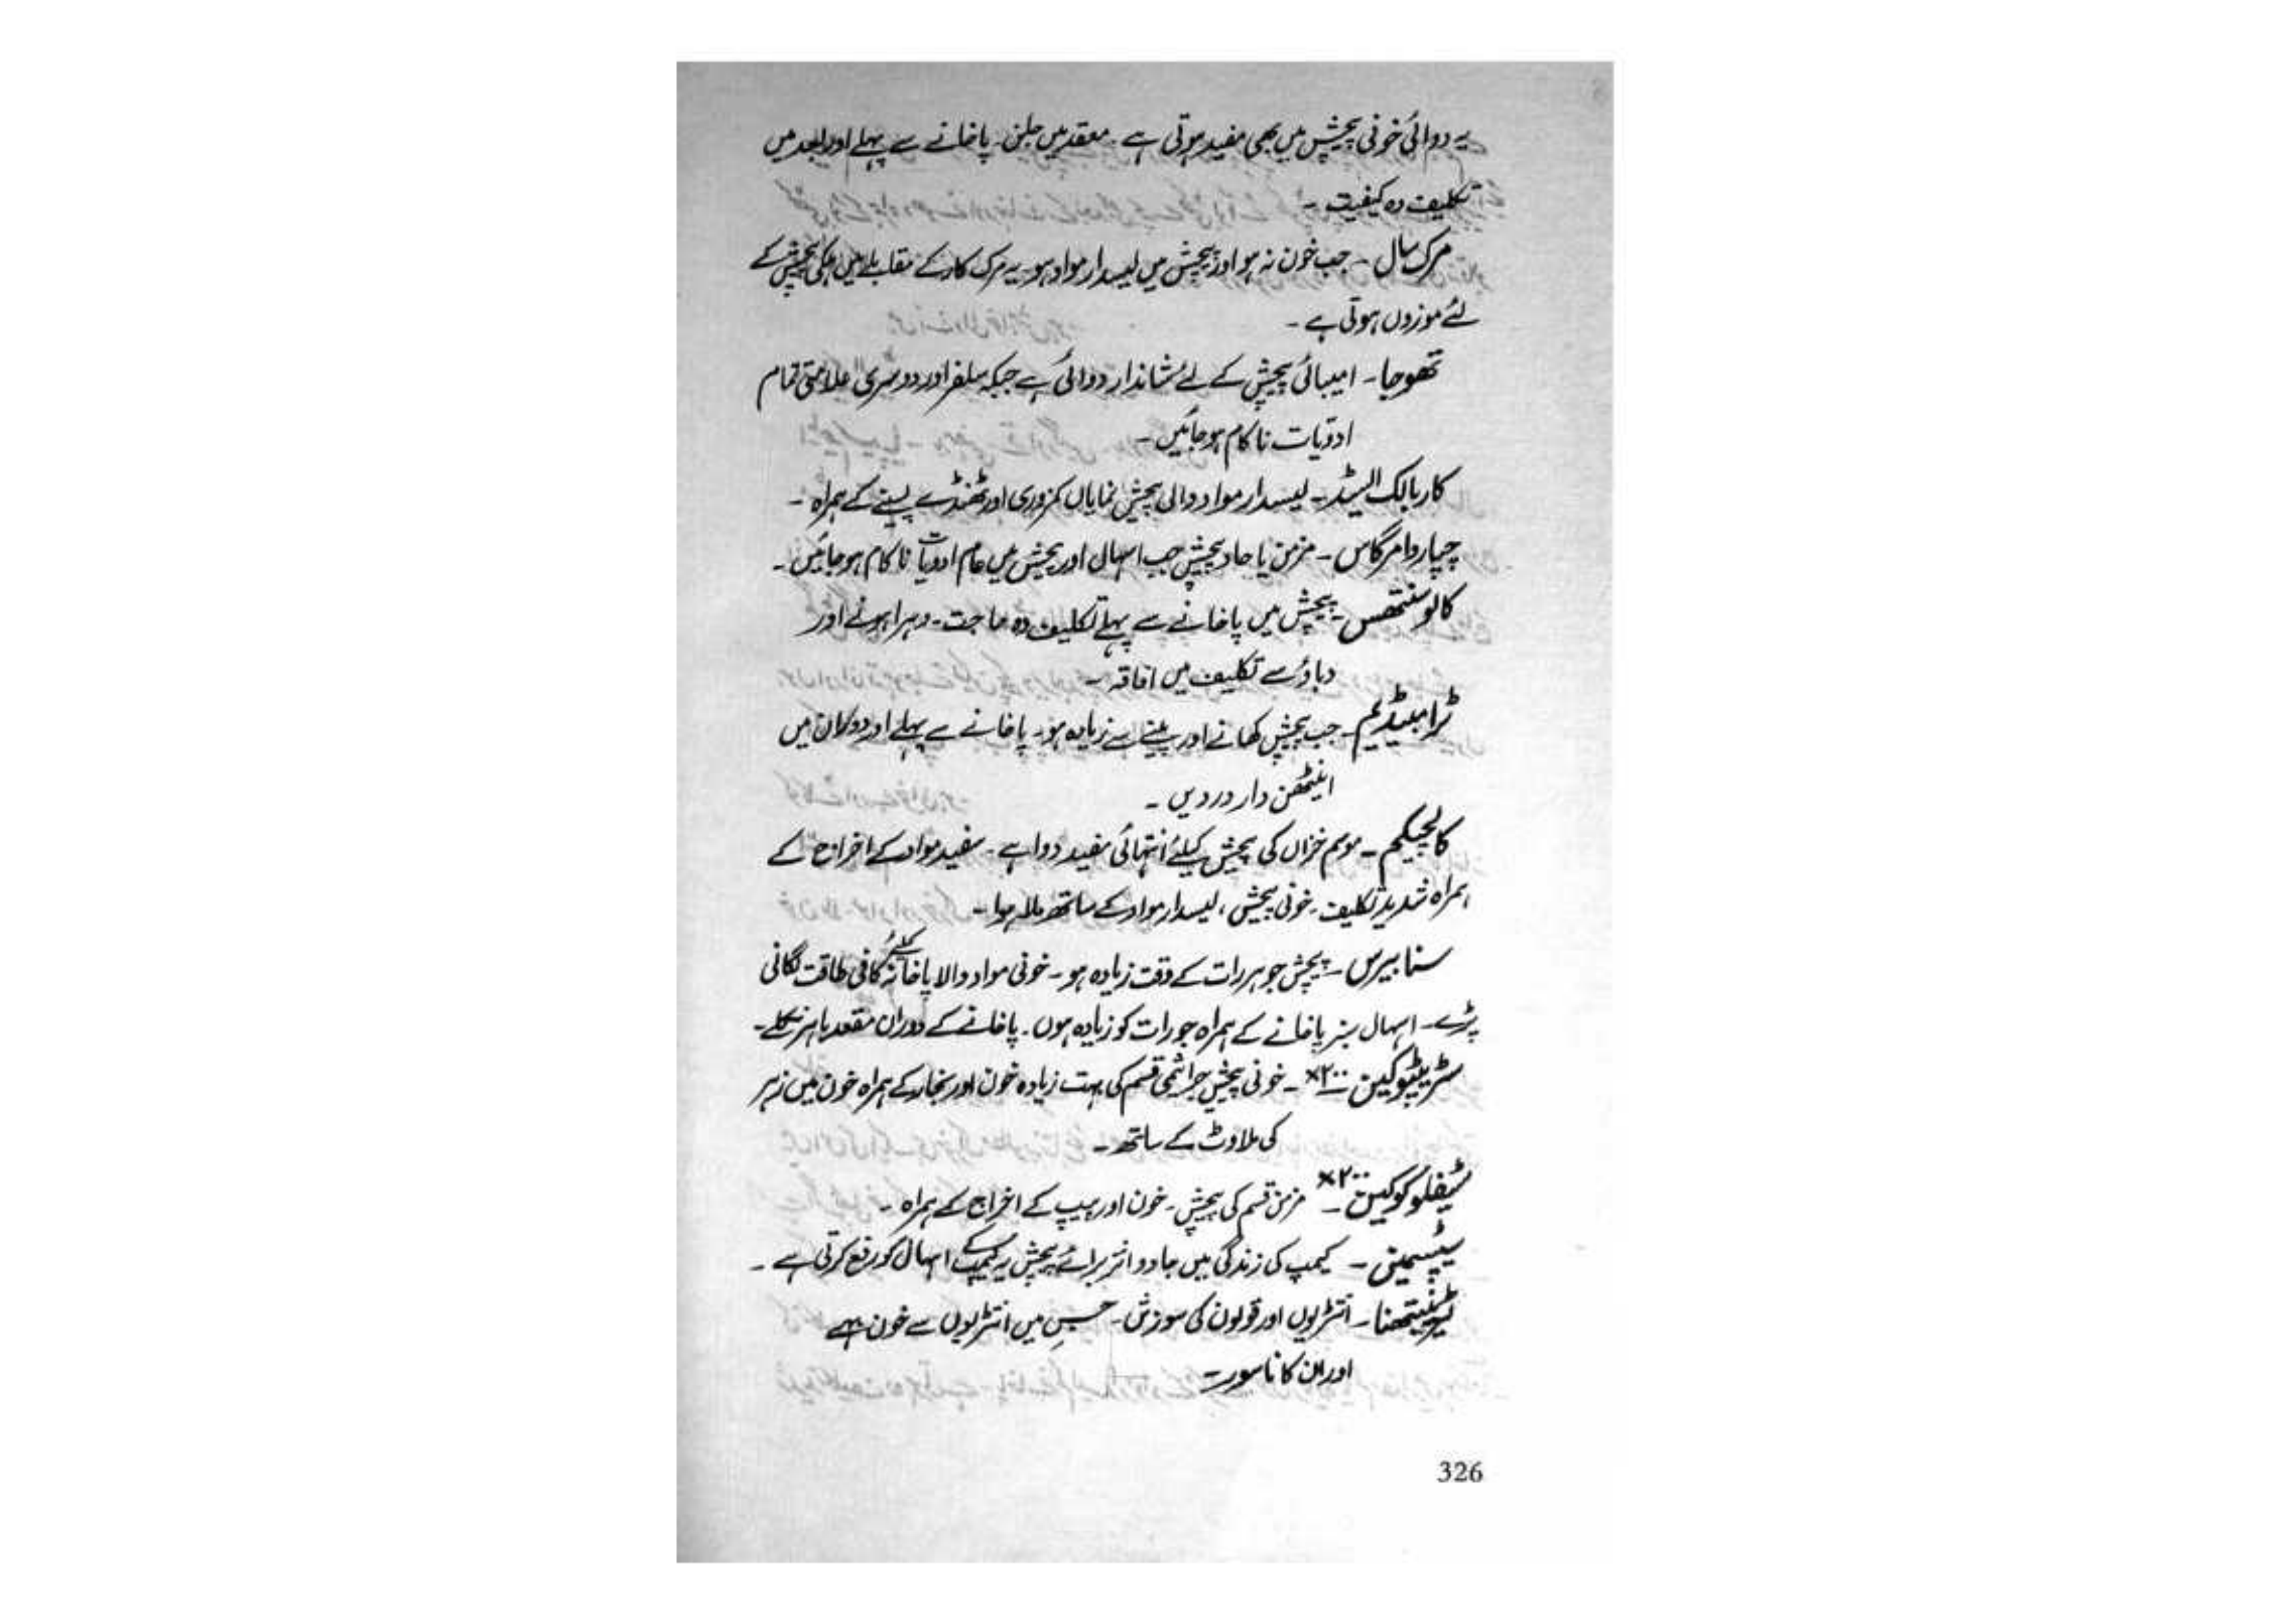 یہ دوائی خونی پیچش میں بھی مفید ہوتی ہے۔ مقعد میں جلن۔ پاخانے سے پہلے اور بعد میں
تکلیف دہ کیفیت۔
مرک سال۔ جب خون نہ ہو اور پیچش میں لیسدار مواد ہو۔ یہ مرک کار کے مقابلے میں ہلکی پیچش کے
لئے موزوں ہوتی ہے۔
تھوجا۔ امیبائی پیچش کے لئے شاندار دوائی ہے جبکہ سلفر اور دوسری علامتی تمام
ادویات ناکام ہو جائیں۔
کاربالک ایسڈ۔ لیسدار مواد والی پیچش نمایاں کمزوری اور ٹھنڈے پسینے کے ہمراہ۔
چپارو امرگاس۔ مزمن یا حاد پیچش جب اسہال اور پیچش میں عام ادویات ناکام ہو جائیں۔
کالوسنتھس۔ پیچش میں پاخانے سے پہلے تکلیف دہ حاجت۔ دہرا ہونے اور
دباؤ سے تکلیف میں افاقہ۔
ٹرامبیڈیم۔ جب پیچش کھانے اور پینے سے زیادہ ہو۔ پاخانے سے پہلے اور دوران میں
اینٹھن دار دردیں۔
کالچیکم۔ موسم خزاں کی پیچش کیلئے انتہائی مفید دوا ہے۔ سفید مواد کے اخراج کے
ہمراہ شدید تکلیف۔ خونی پیچش، لیسدار مواد کے ساتھ ملا ہوا۔
سنابیرس۔ پیچش جو ہر رات کے وقت زیادہ ہو۔ خونی مواد والا پاخانہ کیلئے کافی طاقت لگانی
پڑے۔ اسہال سبز پاخانے کے ہمراہ جو رات کو زیادہ ہوں۔ پاخانے کے دوران مقعد باہر نکلے۔
سٹریپٹوکین ۲۰۰x۔ خونی پیچش جراثیمی قسم کی بہت زیادہ خون اور بخار کے ہمراہ خون میں زہر
کی ملاوٹ کے ساتھ۔
سٹیفلوکوکین ۲۰۰x۔ مزمن قسم کی پیچش۔ خون اور پیپ کے اخراج کے ہمراہ۔
کیمپ کی زندگی میں جادو اثر برائے پیچش یہ کیمپ کے اسہال کو رفع کرتی ہے۔
انتڑیوں اور قولون کی سوزش۔ جس میں انتڑیوں سے خون بہے
اور ان کا ناسور۔
326